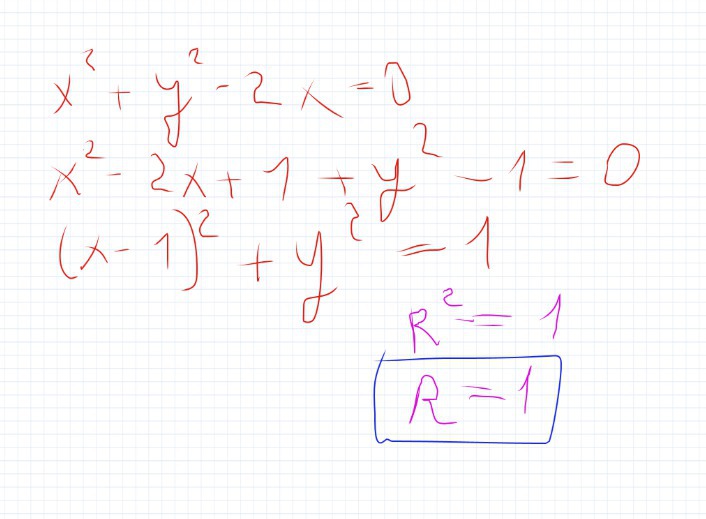 x² + y² - 2x = 0
x² - 2x + 1 + y² - 1 = 0
(x - 1)² + y² = 1
R² = 1
R = 1